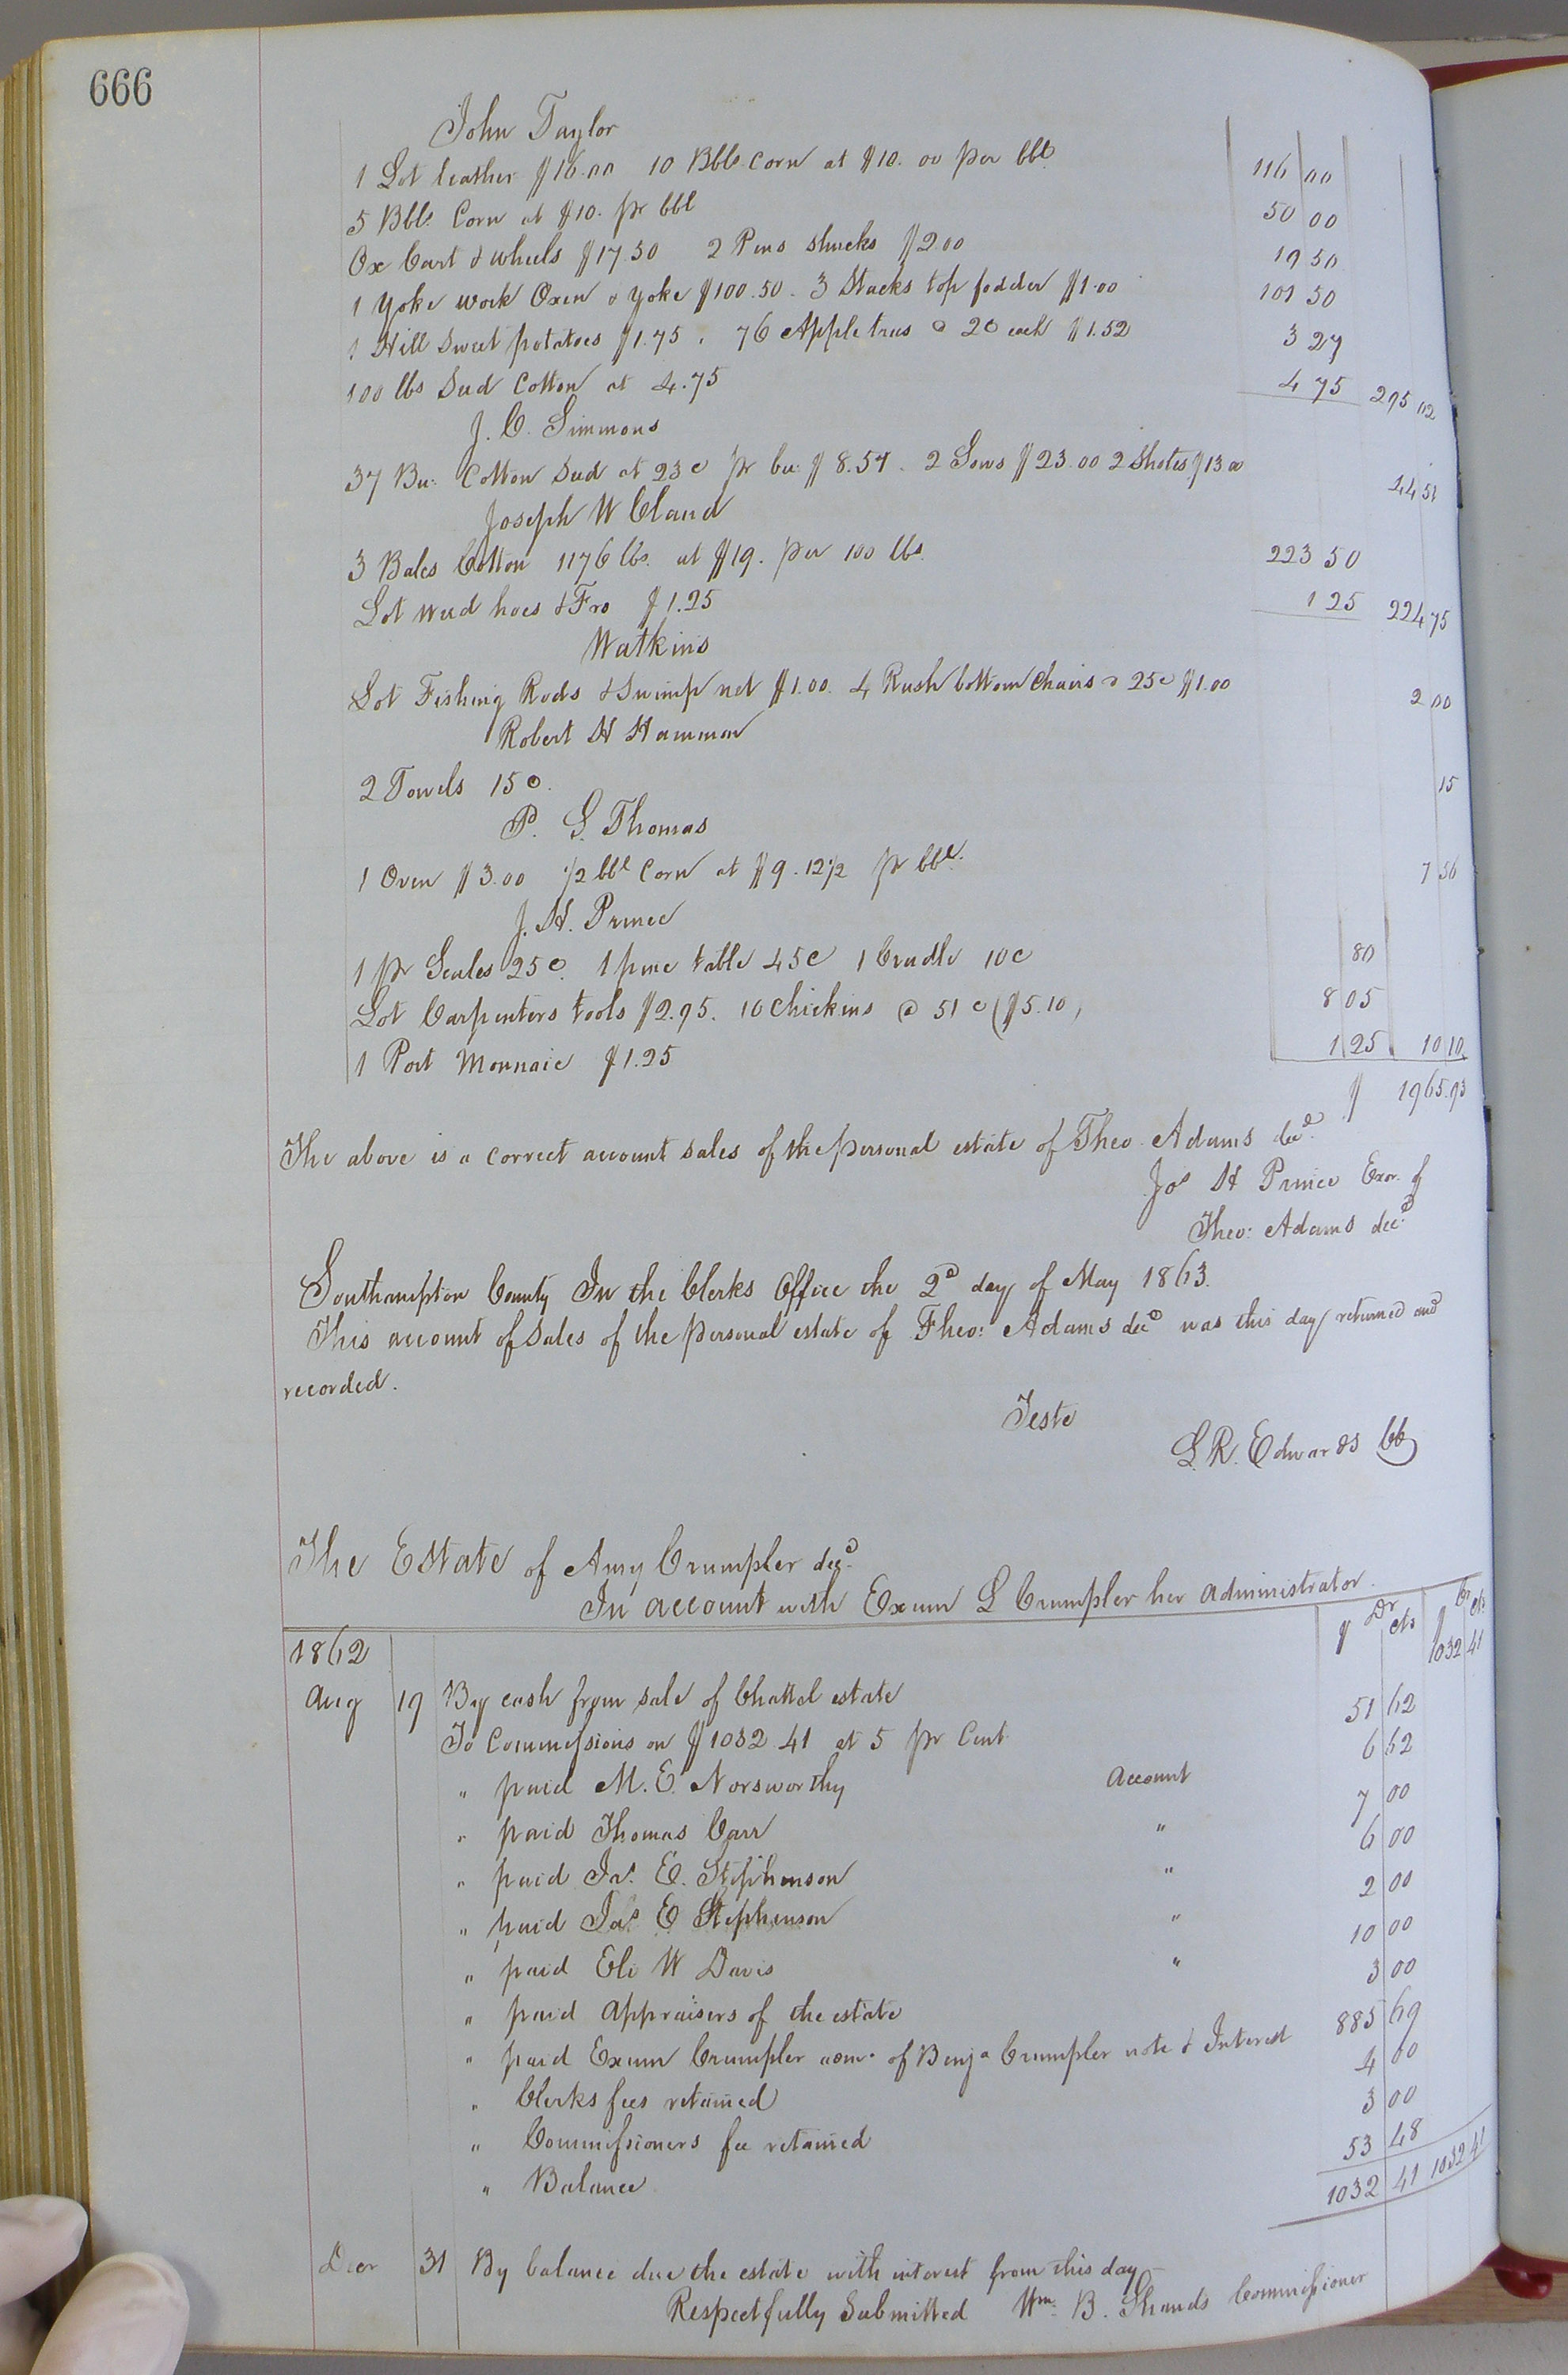 666
John Taylor
1 Lot leather $16.00 10 Bbls. Corn at $10.00 per bbl 116 00
5 Bbls. Corn at $10. pr bbl 50 00
Ox Cart & wheels $17.50 2 Pens shucks $2.00 19 50
1 Yoke work Oxen & yoke $100.50. 3 Stacks top fodder $1.00 101 50
1 Hill Sweet potatoes $1.75. 76 Apple trees @ 2c each $1.52 3 27
100 lbs Seed Cotton at 4.75 4 75 295 02
J. C. Simmons
37 Bu: Cotton Seed at 23c pr bu: $8.51. 2 Sows $23.00 2 Shotes $13 00 44 51
Joseph W Claud
3 Bales Cotton 1176 lbs. at $19. per 100 lbs 223 50
Lot weed hoes & Fro $1.25 1 25 224 75
Watkins
Lot Fishing Rods & Swimp net $1.00. 4 Rush bottom Chairs @ 25c $1.00 2 00
Robert H Hammon
2 Towels 15c. 15
P. G. Thomas
1 Oven $3.00 1/2 bbl Corn at $9.12 1/2 pr bbl. 7 56
J. H. Prince
1 pr Scales 25c. 1 pine table 45c 1 Cradle 10c 80
Lot Carpenters tools $2.95. 10 Chickins @ 51c ($5.10) 8 05
1 Port Monnaie $1.25 1 25 10 10
$ 1965.93
The above is a correct account sales of the personal estate of Theo. Adams decd.
Jos H Prince Exor. of
Theo: Adams decd
Southampton County In the Clerks Office the 2d day of May 1863.
This account of Sales of the personal estate of Theo: Adams decd was this day returned and
recorded.
Teste
L. R. Edwards CC
The Estate of Amy Crumpler decd.
In account with Exum L Crumpler her administrator.
$ Dr cts $ Cr cts
1862 1032 41
Aug 19 By cash from sale of Chattel estate
To Commissions on $1032.41 at 5 pr Cent 51 62
" paid M. E. Norsworthy Account 6 62
" paid Thomas Carr " 7 00
" paid Jas. E. Stephenson " 6 00
" paid Jas. E Stephenson " 2 00
" paid Eli W Davis " 10 00
" paid Appraisers of the estate 3 00
" paid Exum Crumpler adm. of Benja Crumpler note & Interest 885 69
" Clerks fees retained 4 00
" Commissioners fee retained 3 00
" Balance 53 48
1032 41 1032 41
Decr 31 By balance due the estate with interest from this day
Respectfully Submitted Wm. B. Shands Commissioner